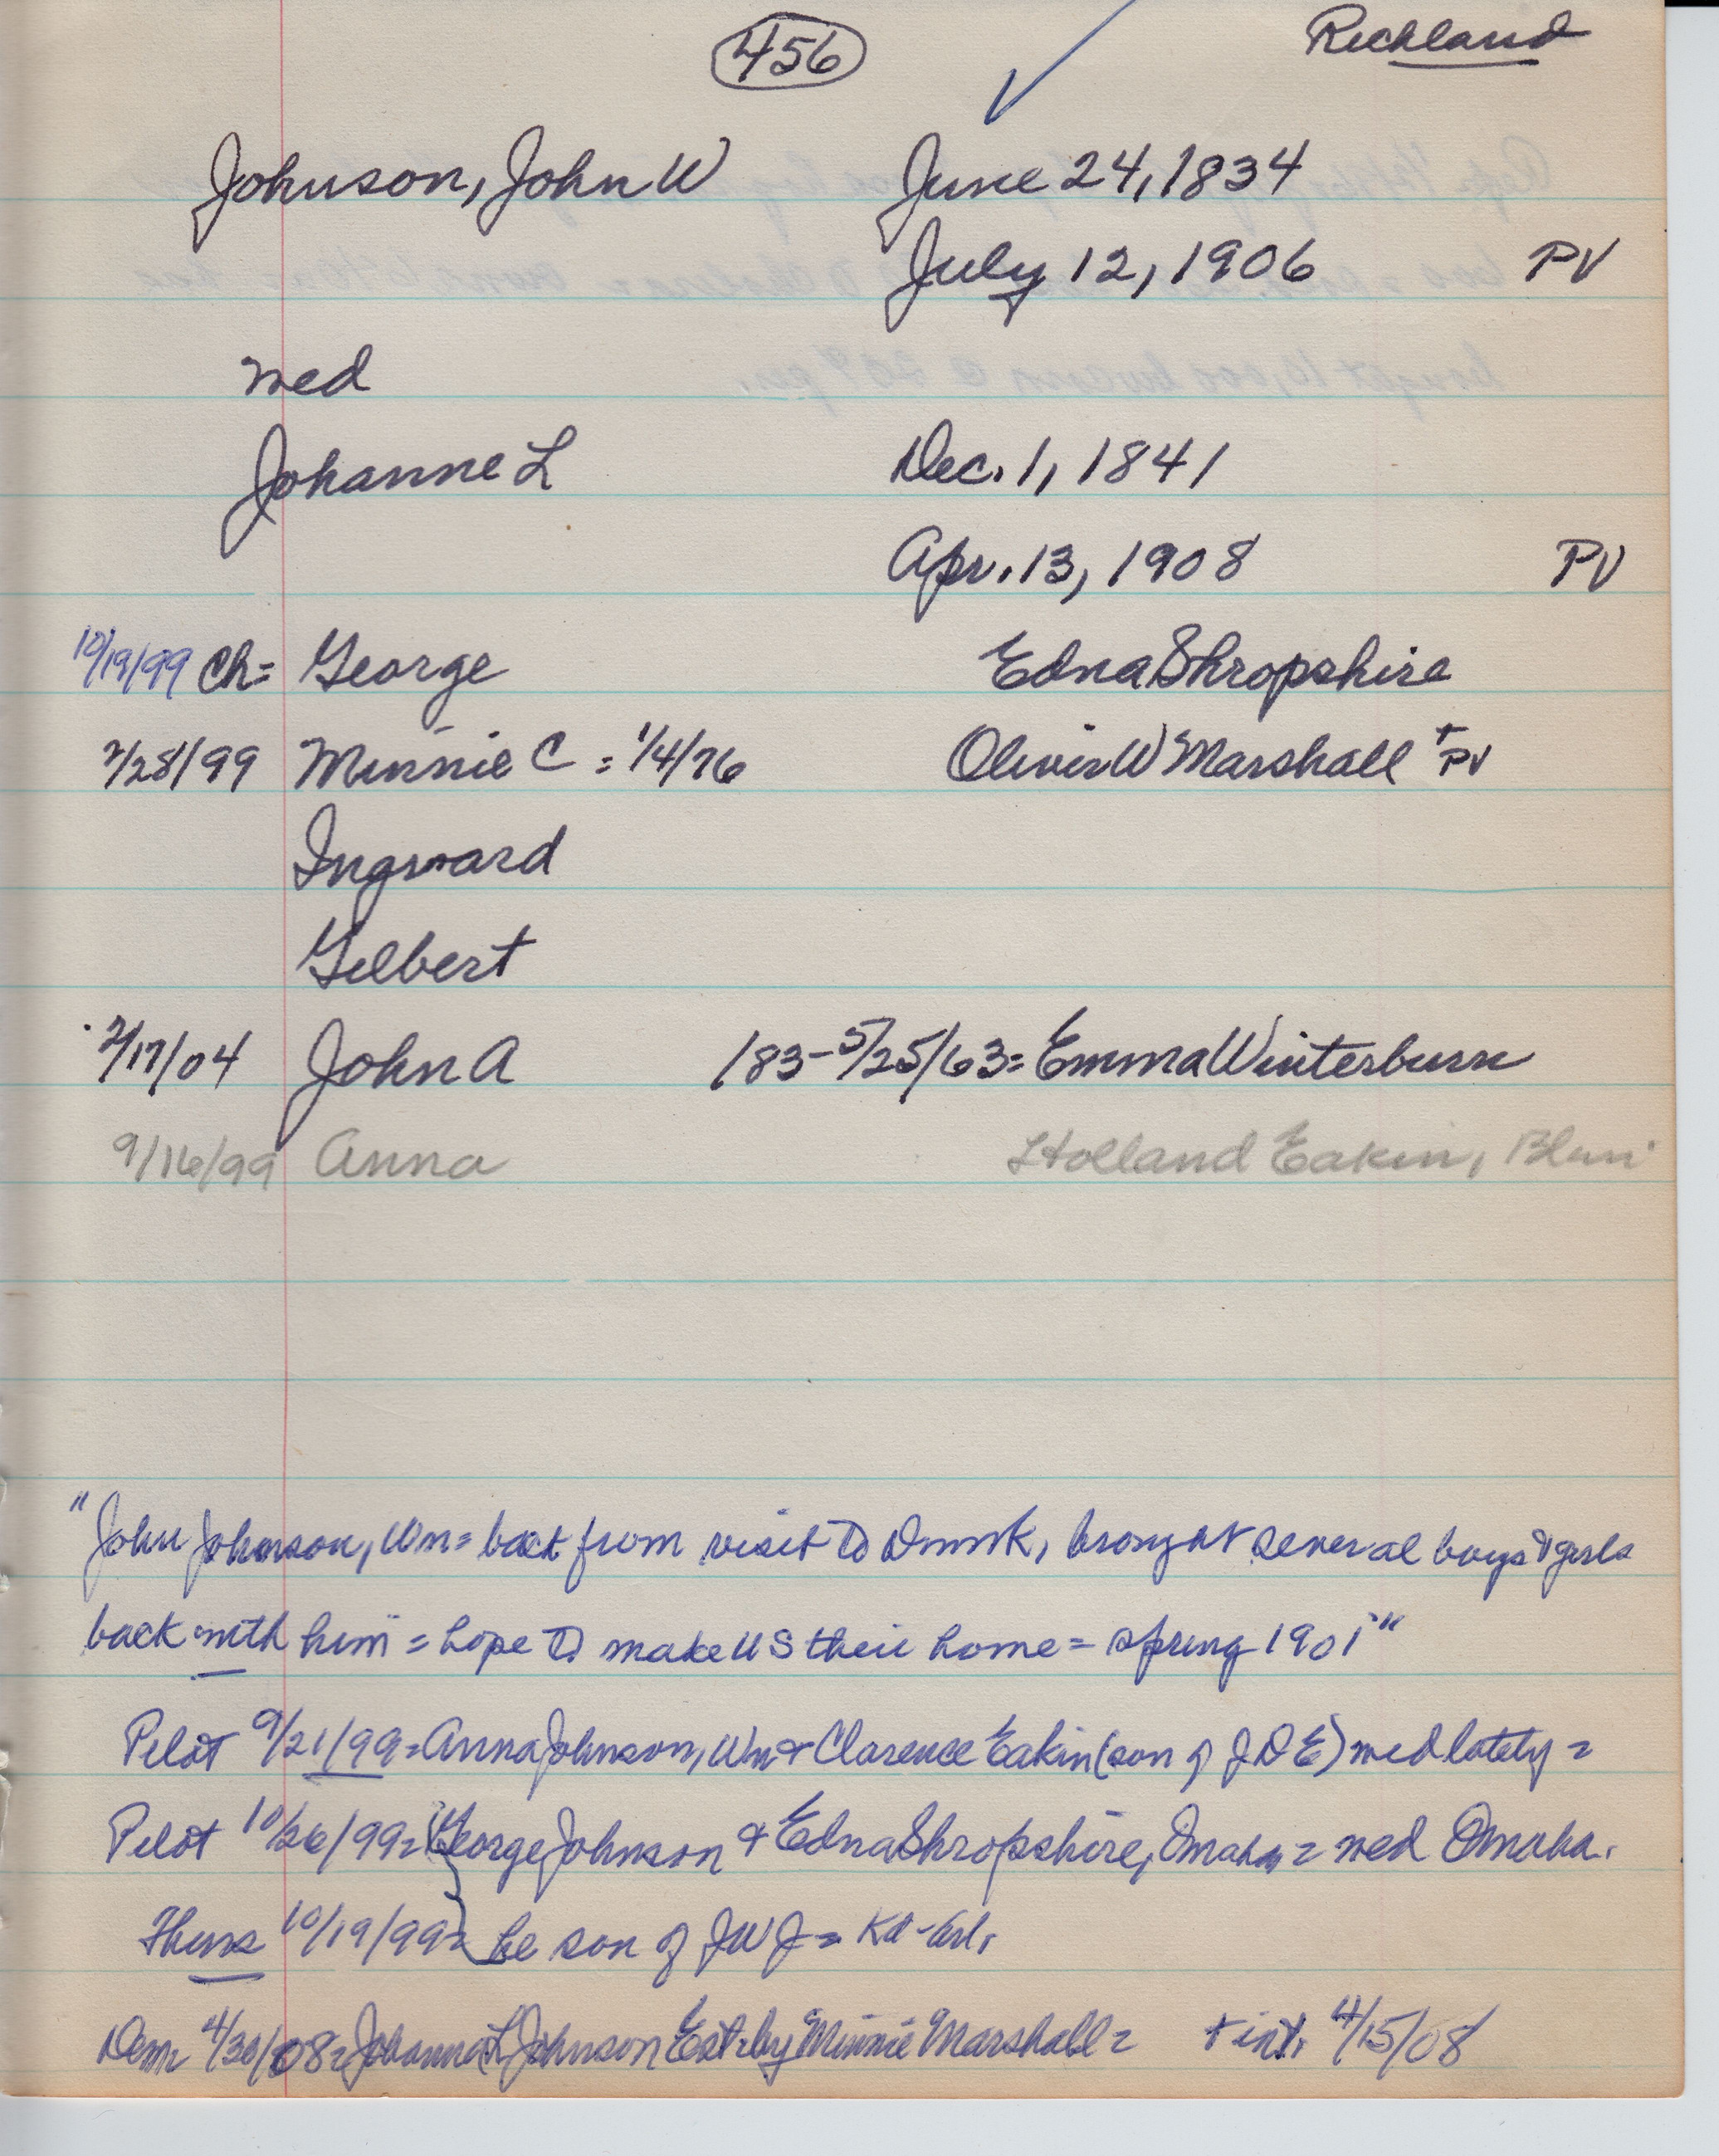 456 Richland
Johnson, John W June 24, 1834
July 12, 1906 PV
med
Johanne L Dec. 1, 1841
Apr. 13, 1908 PV
10/19/99 Ch= George Edna Shropshire
2/28/99 Minnie C = 1/4/76 Oliver W Marshall + PV
Ingward
Gilbert
2/17/04 John A 183- 5/25/63= Emma Winterburn
9/16/99 Anna Holland Eakin, Blair
"John Johnson, Wm= back from visit to Dnmrk, brought several boys & girls
back with him = hope to make US their home = spring 1901"
Pilot 9/21/99= Anna Johnson, Wm & Clarence Eakin (son of J D E) med lately =
Pilot 10/26/99= George Johnson & Edna Shropshire, Omaha = med Omaha.
Thurs 10/19/99= he son of JWJ =
Dem 4/30/08= Johanna L Johnson Est. by Minnie Marshall = + int. 4/15/08